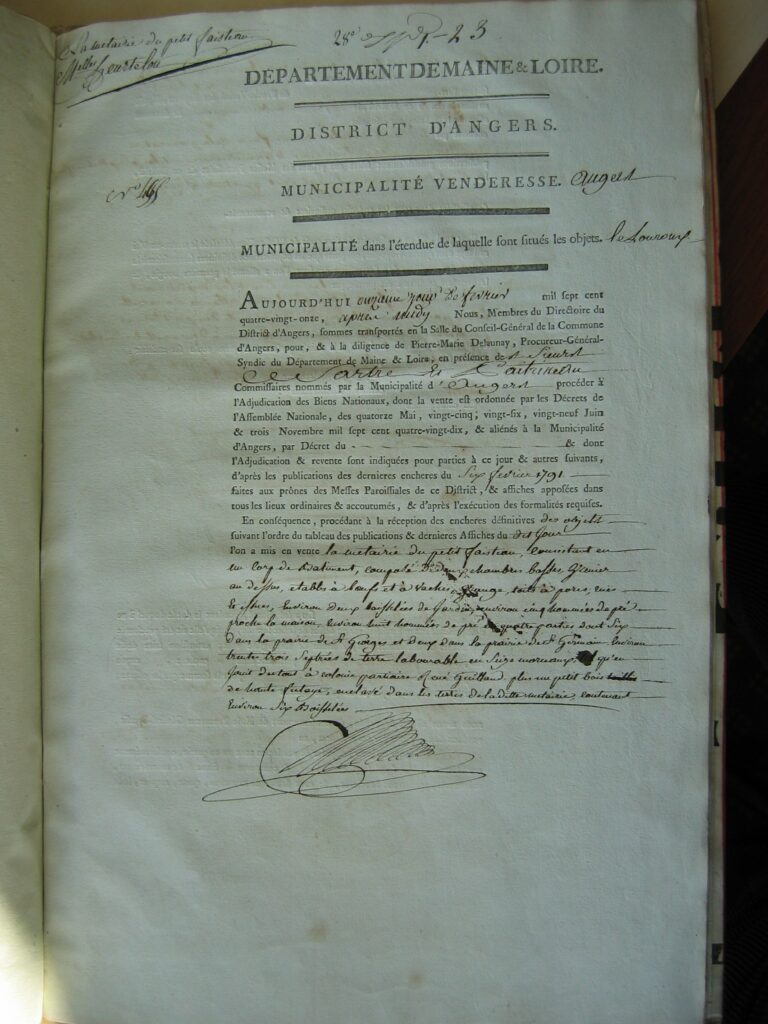 La métairie du petit faiteau
28e 23
DÉPARTEMENT DE MAINE & LOIRE.
DISTRICT D'ANGERS.
No
MUNICIPALITÉ VENDERESSE. Angers
MUNICIPALITÉ dans l'étendue de laquelle sont situés les objets. le Louroux
AUJOURD'HUI onzieme jour de fevrier mil sept cent
quatre-vingt-onze, apres midy Nous, Membres du Directoire du
District d'Angers, sommes transportés en la Salle du Conseil-Général de la Commune
d'Angers, pour, & à la diligence de Pierre-Marie Delaunay, Procureur-Général-
Syndic du Département de Maine & Loire, en présence de Srs Sieurs
Commissaires nommés par la Municipalité d'Angers procéder à
l'Adjudication des Biens Nationaux, dont la vente est ordonnée par les Décrets de
l'Assemblée Nationale, des quatorze Mai, vingt-cinq; vingt-six, vingt-neuf Juin
& trois Novembre mil sept cent quatre-vingt-dix, & aliénés à la Municipalité
d'Angers, par Décret du & dont
l'Adjudication & revente sont indiquées pour parties à ce jour & autres suivants,
d'après les publications des dernieres encheres du Six fevrier 1791
faites aux prônes des Messes Paroissiales de ce District, & affiches apposées dans
tous les lieux ordinaires & accoutumés, & d'après l'exécution des formalités requises.
En conséquence, procédant à la réception des encheres définitives des objets
suivant l'ordre du tableau des publications & dernieres Affiches du dit jour
l'on a mis en vente la métairie du petit faiteau, Consistant en
un Corp de Batiment, composé de deux chambres basses Grenier
au dessus, etables à boeufs et à vaches, grange, toits à porcs, rues
et issues, Environ deux boisselées de Jardin, environ cinq hommées de pré
proche la maison, Environ huit hommées de pré en quatre parties dont Six
dans la prairie de St Georges et deux dans la prairie de St Germain Environ
trente trois Septrées de terre labourable en Seize morceaux
jouit du tout à colonie partiaire René Guilland plus un petit bois
de haute futaye, enclavé dans les terres de la ditte métairie, contenant
Environ Six Boisselées